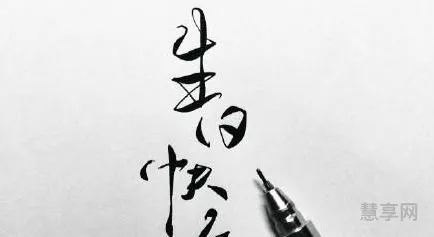 生日快
慧享网